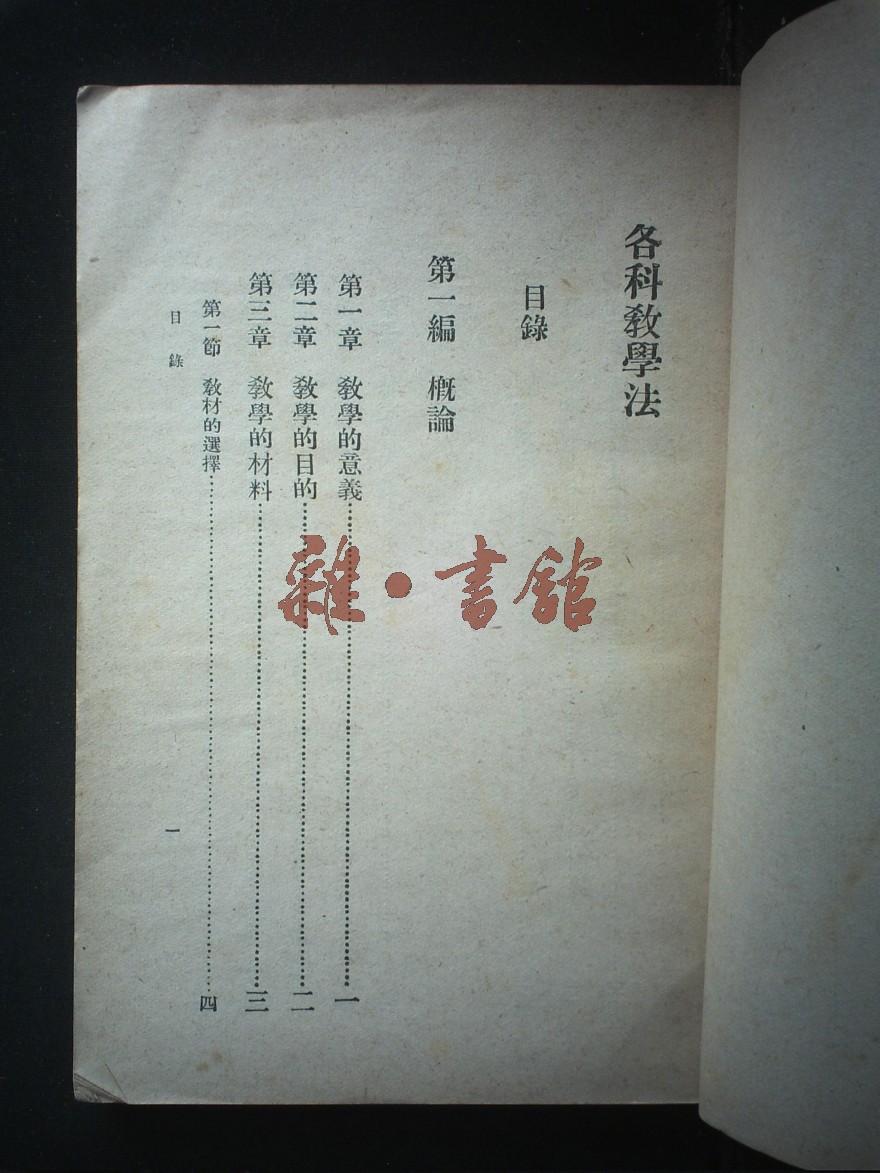 各科教學法
目錄
第一編　概論
第一章　教學的意義……………………一
第二章　教學的目的……………………二
第三章　教學的材料……………………三
第一節　教材的選擇……………………四
目錄　一
雜·書館